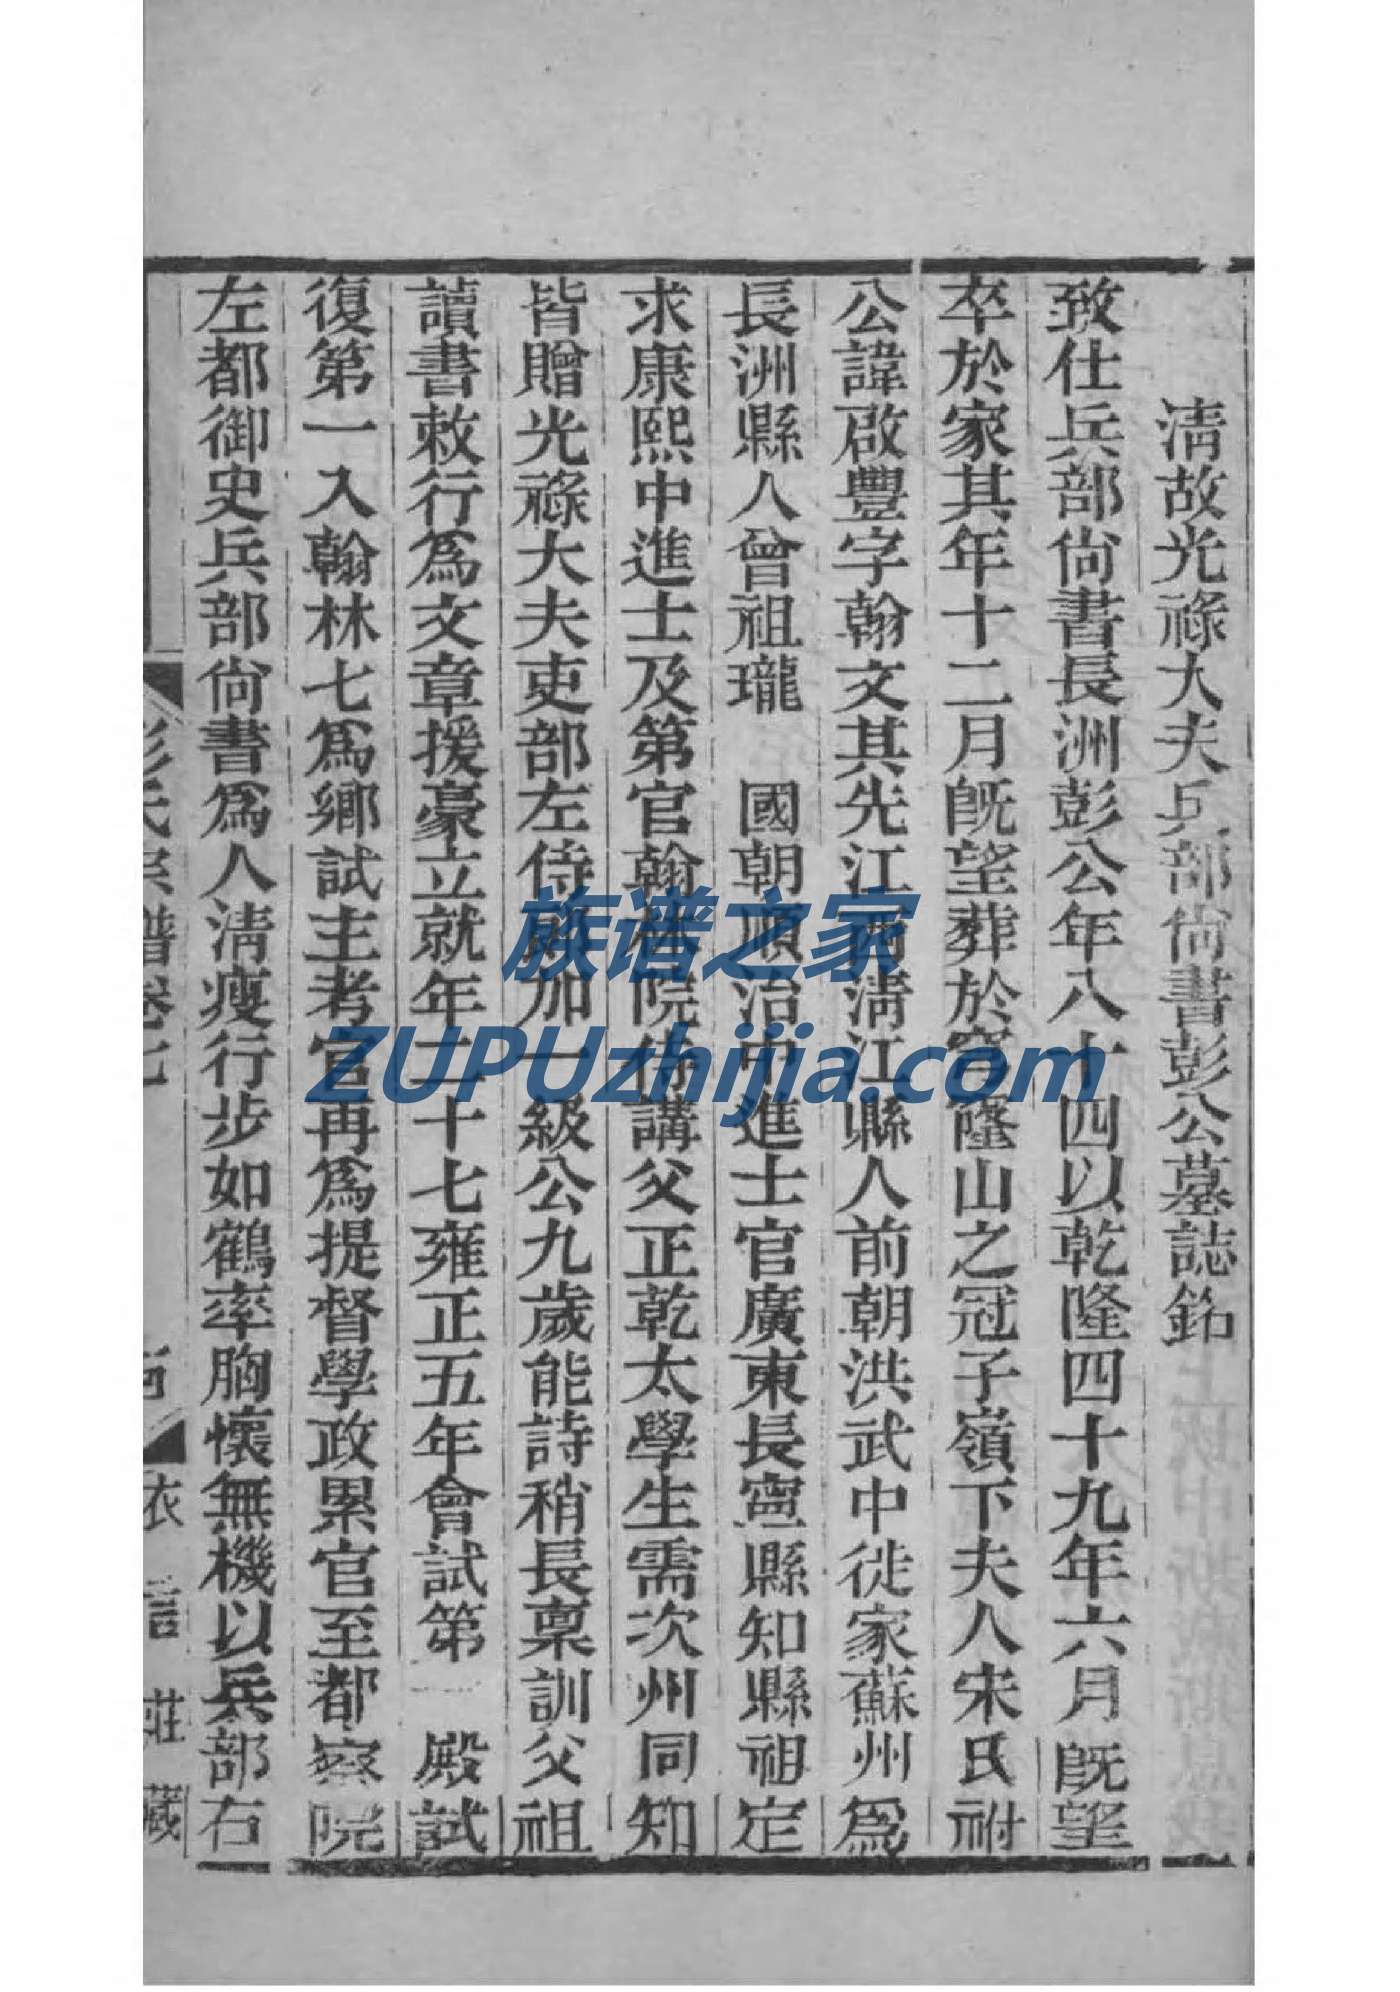 清故光祿大夫兵部尙書彭公墓誌銘
致仕兵部尙書長洲彭公年八十四以乾隆四十九年六月旣望
卒於家其年十二月旣望葬於穹窿山之冠子嶺下夫人宋氏祔
公諱啟豐字翰文其先江西清江縣人前朝洪武中徙家蘇州爲
長洲縣人曾祖瓏 國朝順治中進士官廣東長寧縣知縣祖定
求康熙中進士及第官翰林院侍講父正乾太學生需次州同知
皆贈光祿大夫吏部左侍郞加一級公九歲能詩稍長稟訓父祖
讀書敕行爲文章援豪立就年二十七雍正五年會試第一殿試
復第一入翰林七爲鄉試主考官再爲提督學政累官至都察院
左都御史兵部尙書爲人清瘦行步如鶴率胸懷無機以兵部右
彭氏宗譜卷七
衣言莊藏
族谱之家
ZUPUzhijia.com